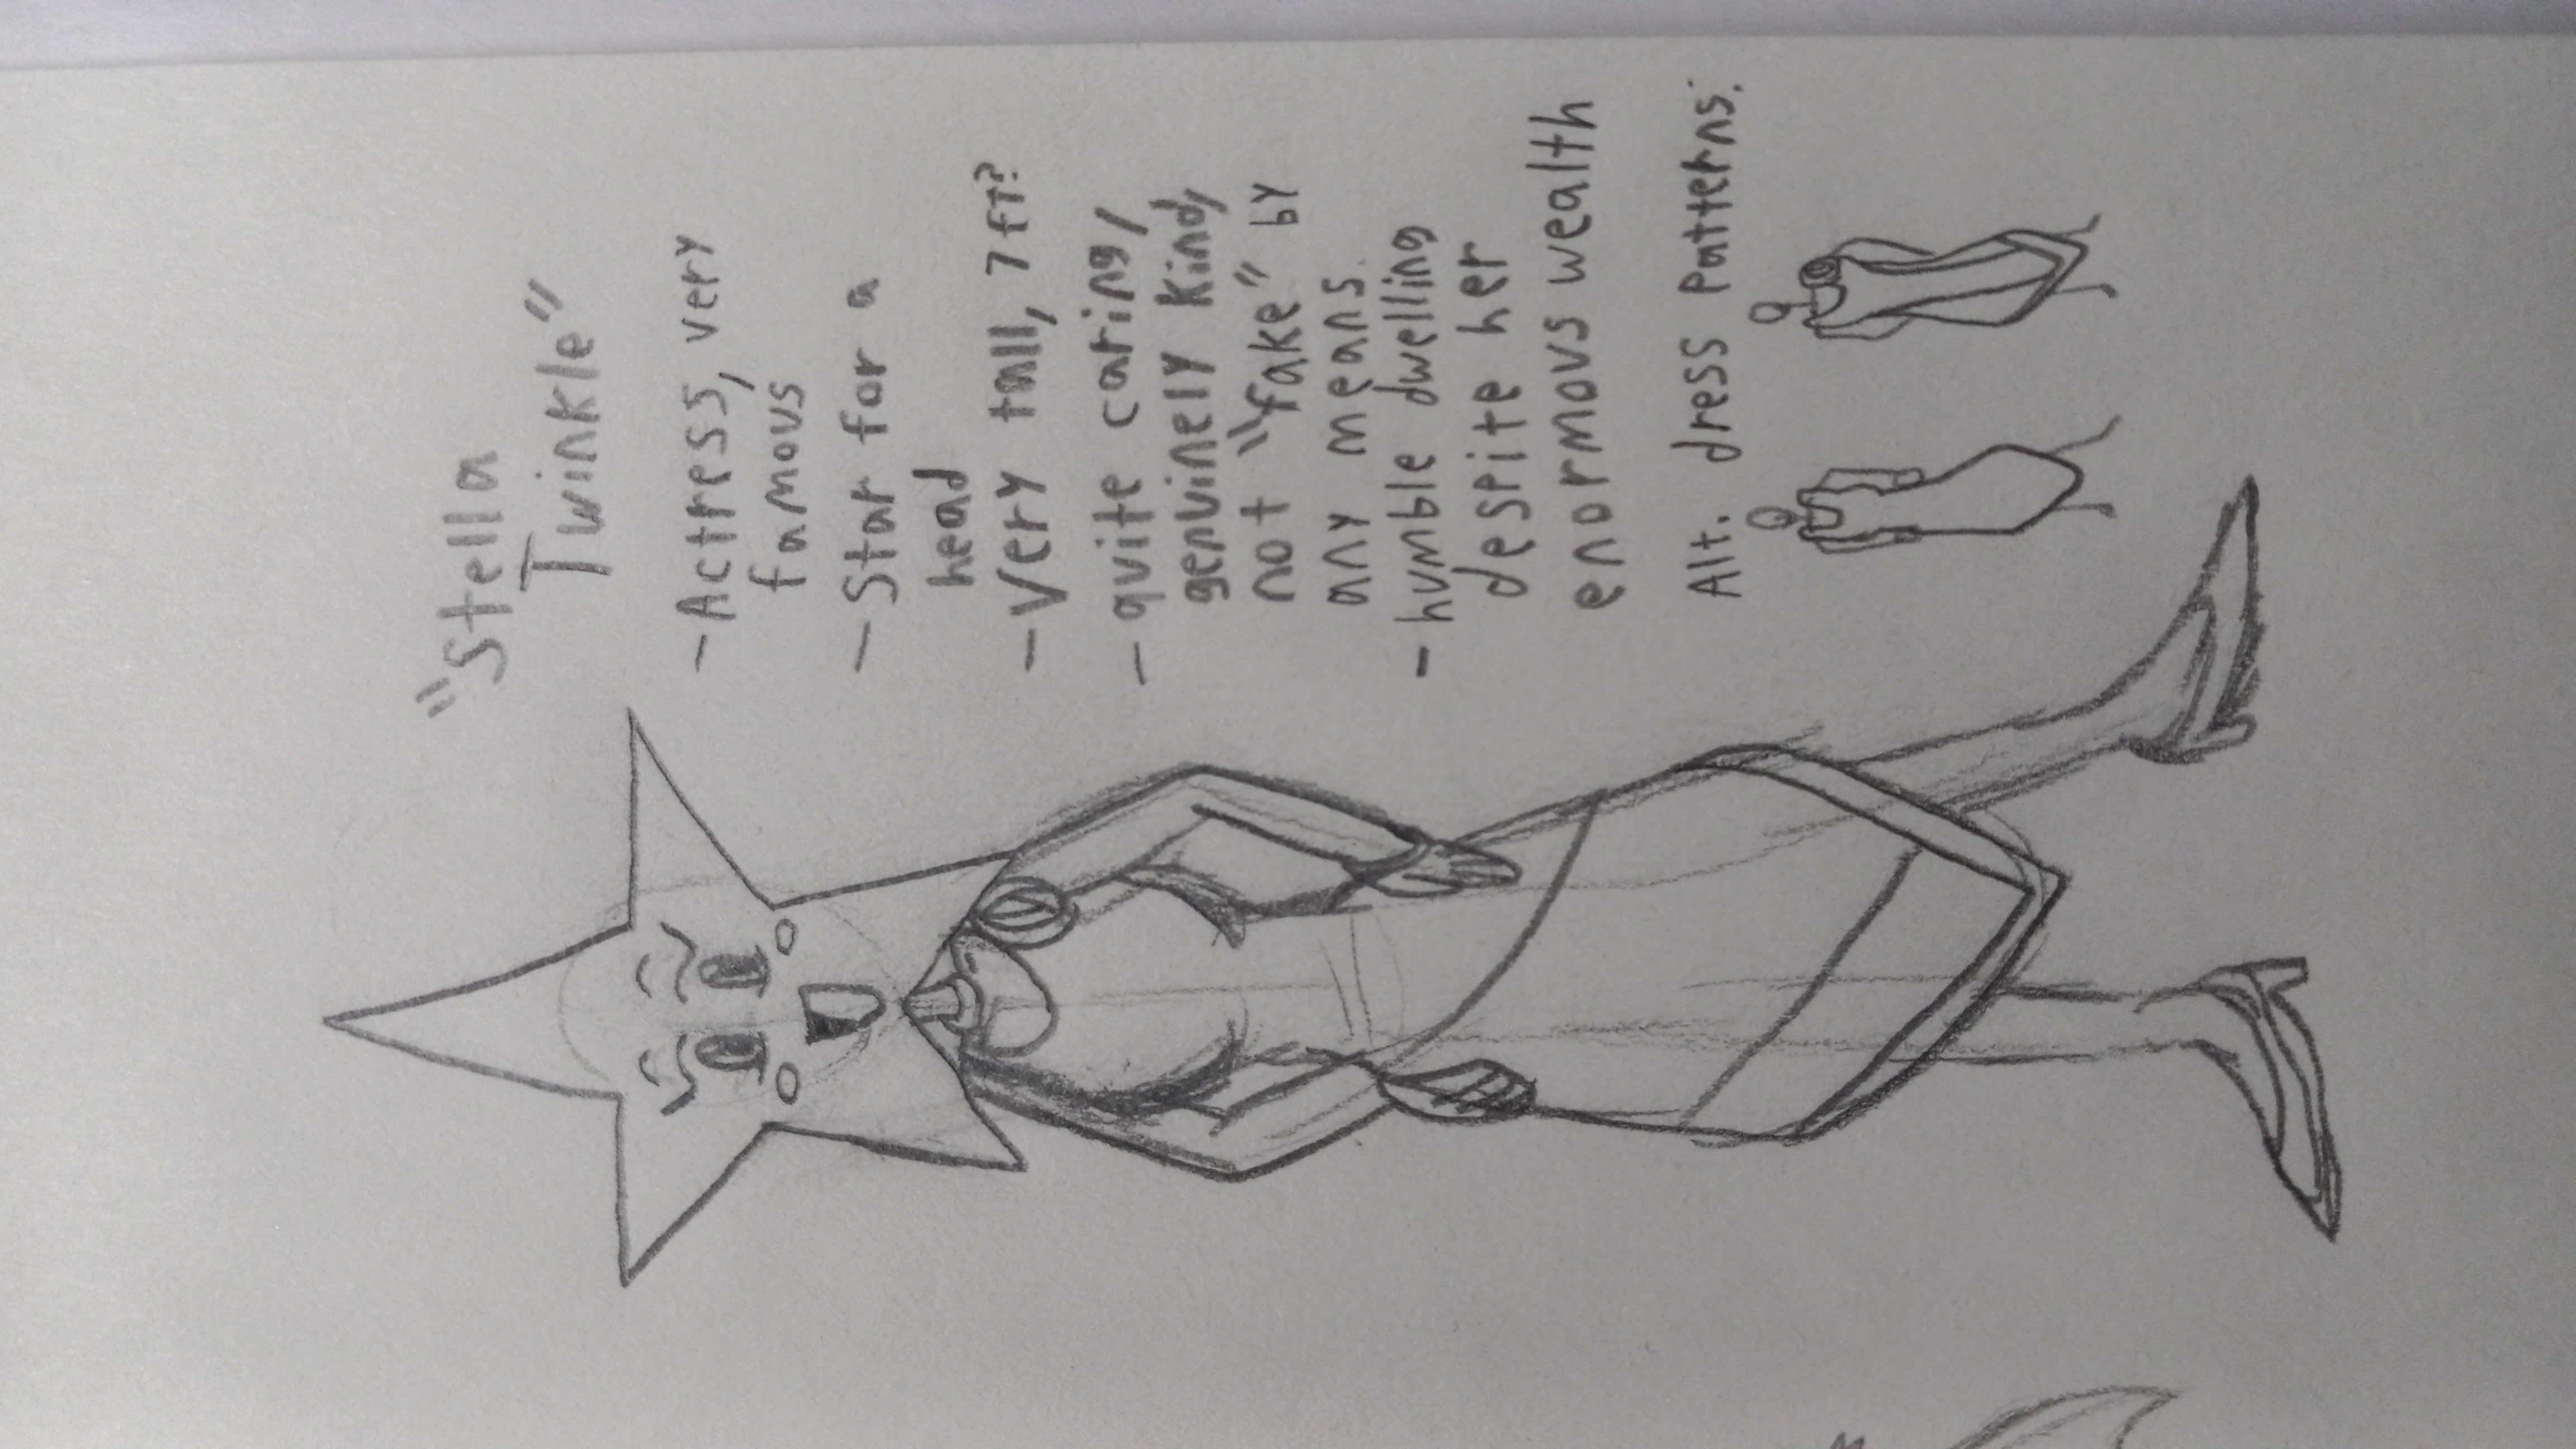 "Stella
Twinkle"
-Actress, very
famous
-Star for a
head
-Very tall, 7ft?
-quite caring,
genuinely kind,
not "fake" by
any means.
-humble dwelling
despite her
enormous wealth
Alt. dress patterns: